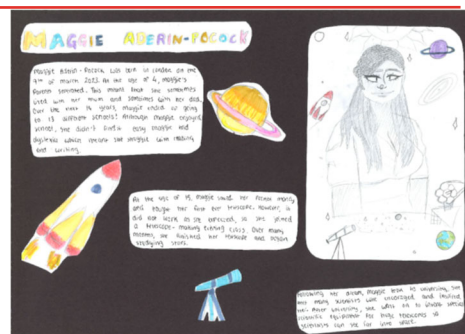 MAGGIE ADERIN-POCOCK
Maggie Aderin-Pocock was born in London on the
9th of March. At the age of 4, maggie's
Parents seperated. This meant that she sometimes
lived with her mum and sometimes with her dad.
Over the next 14 years, maggie ended up going
to 13 different schools! Although maggie enjoyed
school, she didn't find it easy maggie had
dyslexia which means she struggle with reading
and writing.
At the age of 15, maggie saved her pocket money
and bought her first ever telescope. However, it
did not work as she expected, so she joined
a telescope-making evening class. Over many
months, she finished her telescope and began
studying stars.
Following her dream, maggie went to university, she
met many scientists who encouraged and inspired
her. After university, she went on to build special
scientific equipment for huge telescopes so
scientists can see far into space.